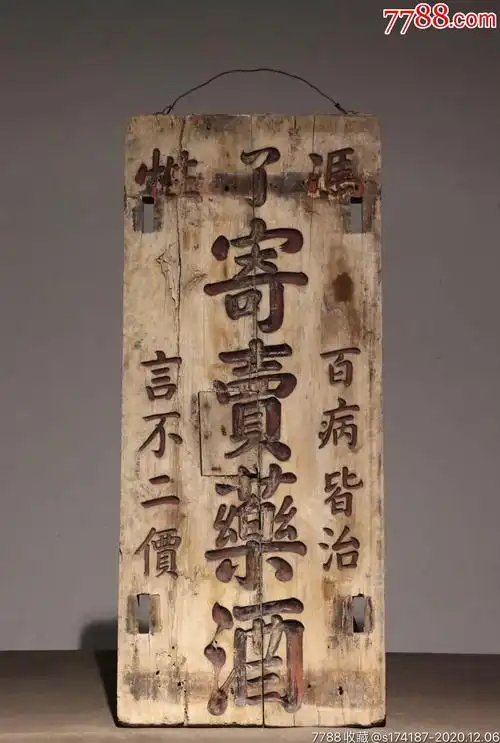 7788.com
馮了性
百病皆治
寄賣藥酒
言不二價
7788收藏@s174187-2020.12.06